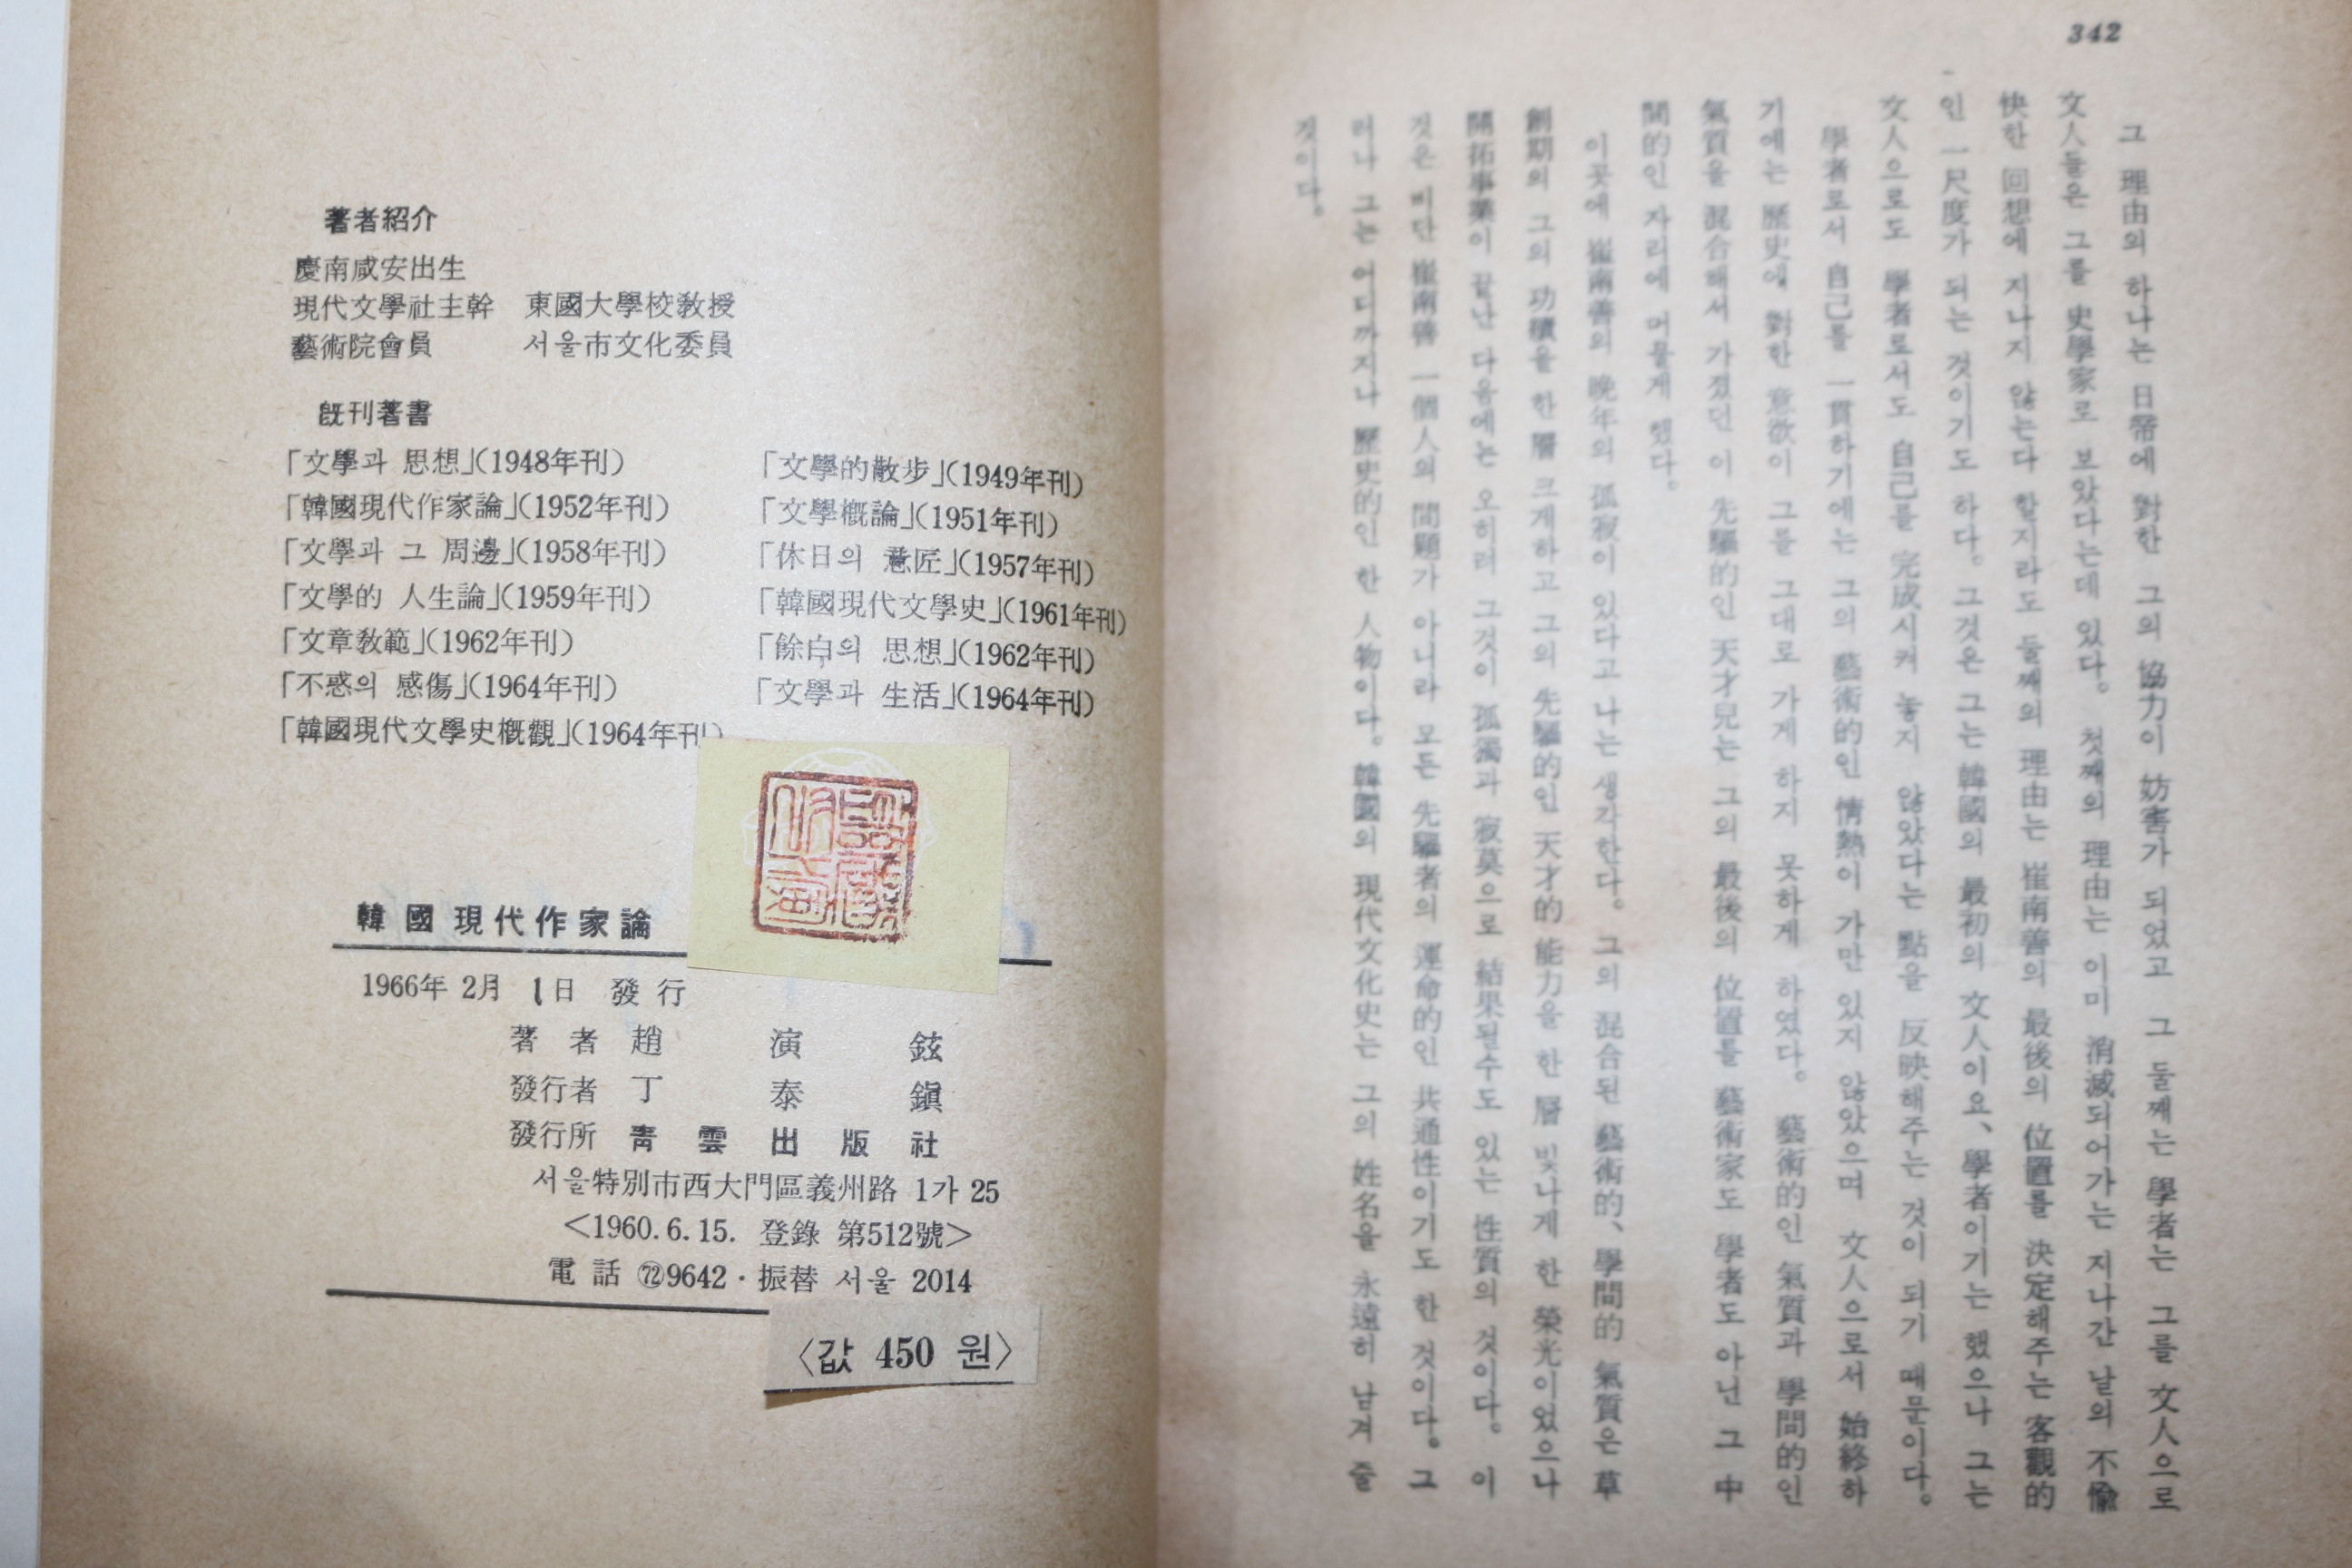 342
그 理由의 하나는 日帝에 對한 그의 協力이 妨害가 되었고 그 둘째는 學者는 그를 文人으로
文人들은 그를 史學家로 보았다는데 있다。 첫째의 理由는 이미 消滅되어가는 지나간 날의 不愉
快한 回想에 지나지 않는다 할지라도 둘째의 理由는 崔南善의 最後의 位置를 決定해주는 客觀的
인 一尺度가 되는 것이기도 하다。 그것은 그는 韓國의 最初의 文人이요、學者이기는 했으나 그는
文人으로도 學者로서도 自己를 完成시켜 놓지 않았다는 點을 反映해주는 것이 되기 때문이다。
學者로서 自己를 一貫하기에는 그의 藝術的인 情熱이 가만 있지 않았으며 文人으로서 始終하
기에는 歷史에 對한 意欲이 그를 그대로 가게 하지 못하게 하였다。 藝術的인 氣質과 學問的인
氣質을 混合해서 가졌던 이 先驅的인 天才兒는 그의 最後의 位置를 藝術家도 學者도 아닌 그 中
間的인 자리에 머물게 했다。
이곳에 崔南善의 晩年의 孤寂이 있다고 나는 생각한다。 그의 混合된 藝術的、學問的 氣質은 草
創期의 그의 功績을 한層 크게하고 그의 先驅的인 天才的 能力을 한層 빛나게 한 榮光이었으나
開拓事業이 끝난 다음에는 오히려 그것이 孤獨과 寂莫으로 結果될수도 있는 性質의 것이다。 이
것은 비단 崔南善 一個人의 問題가 아니라 모든 先驅者의 運命的인 共通性이기도 한 것이다。 그
러나 그는 어디까지나 歷史的인 한 人物이다。韓國의 現代文化史는 그의 姓名을 永遠히 남겨 줄
것이다。
著者紹介
慶南咸安出生
現代文學社主幹 東國大學校敎授
藝術院會員 서울市文化委員
旣刊著書
「文學과 思想」(1948年刊) 「文學的散步」(1949年刊)
「韓國現代作家論」(1952年刊) 「文學槪論」(1951年刊)
「文學과 그 周邊」(1958年刊) 「休日의 意匠」(1957年刊)
「文學的 人生論」(1959年刊) 「韓國現代文學史」(1961年刊)
「文章敎範」(1962年刊) 「餘白의 思想」(1962年刊)
「不惑의 感傷」(1964年刊) 「文學과 生活」(1964年刊)
「韓國現代文學史槪觀」(1964年刊)
韓國現代作家論
1966年 2月 1日 發行
著者 趙演鉉
發行者 丁泰鎭
發行所 靑雲出版社
서울特別市西大門區義州路 1가 25
<1960.6.15. 登錄 第512號>
電話 ㉒9642・振替 서울 2014
〈값 450 원〉